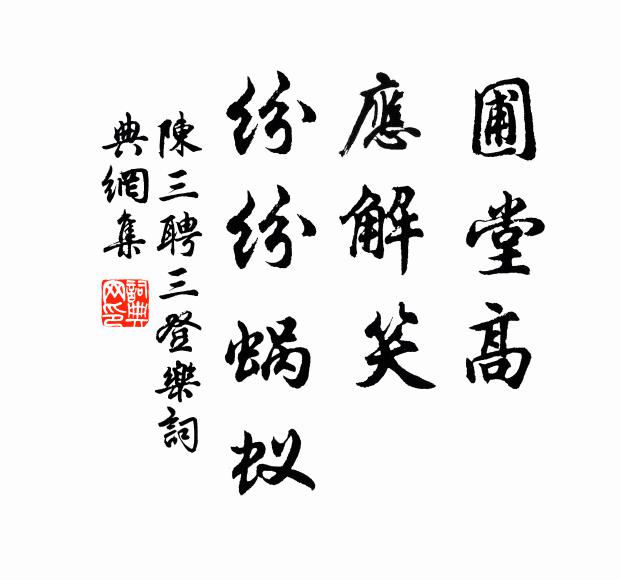 圃堂高
應解笑
紛紛蝸蚁
陳三聘三登樂詞
典網集
詞典网印